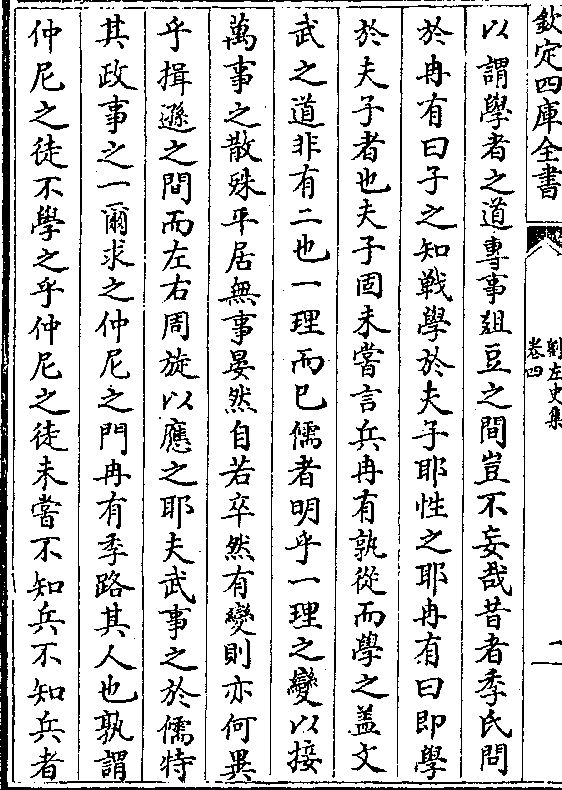 欽定四庫全書
劉左史集
卷四
二
以謂學者之道專事爼豆之間豈不妄哉昔者季氏問
於冉有曰子之知戰學於夫子耶性之耶冉有曰即學
於夫子者也夫子固未嘗言兵冉有孰從而學之盖文
武之道非有二也一理而已儒者明乎一理之變以接
萬事之散殊平居無事晏然自若卒然有變則亦何異
乎揖遜之間而左右周旋以應之耶夫武事之於儒特
其政事之一爾求之仲尼之門冉有季路其人也孰謂
仲尼之徒不學之乎仲尼之徒未嘗不知兵不知兵者